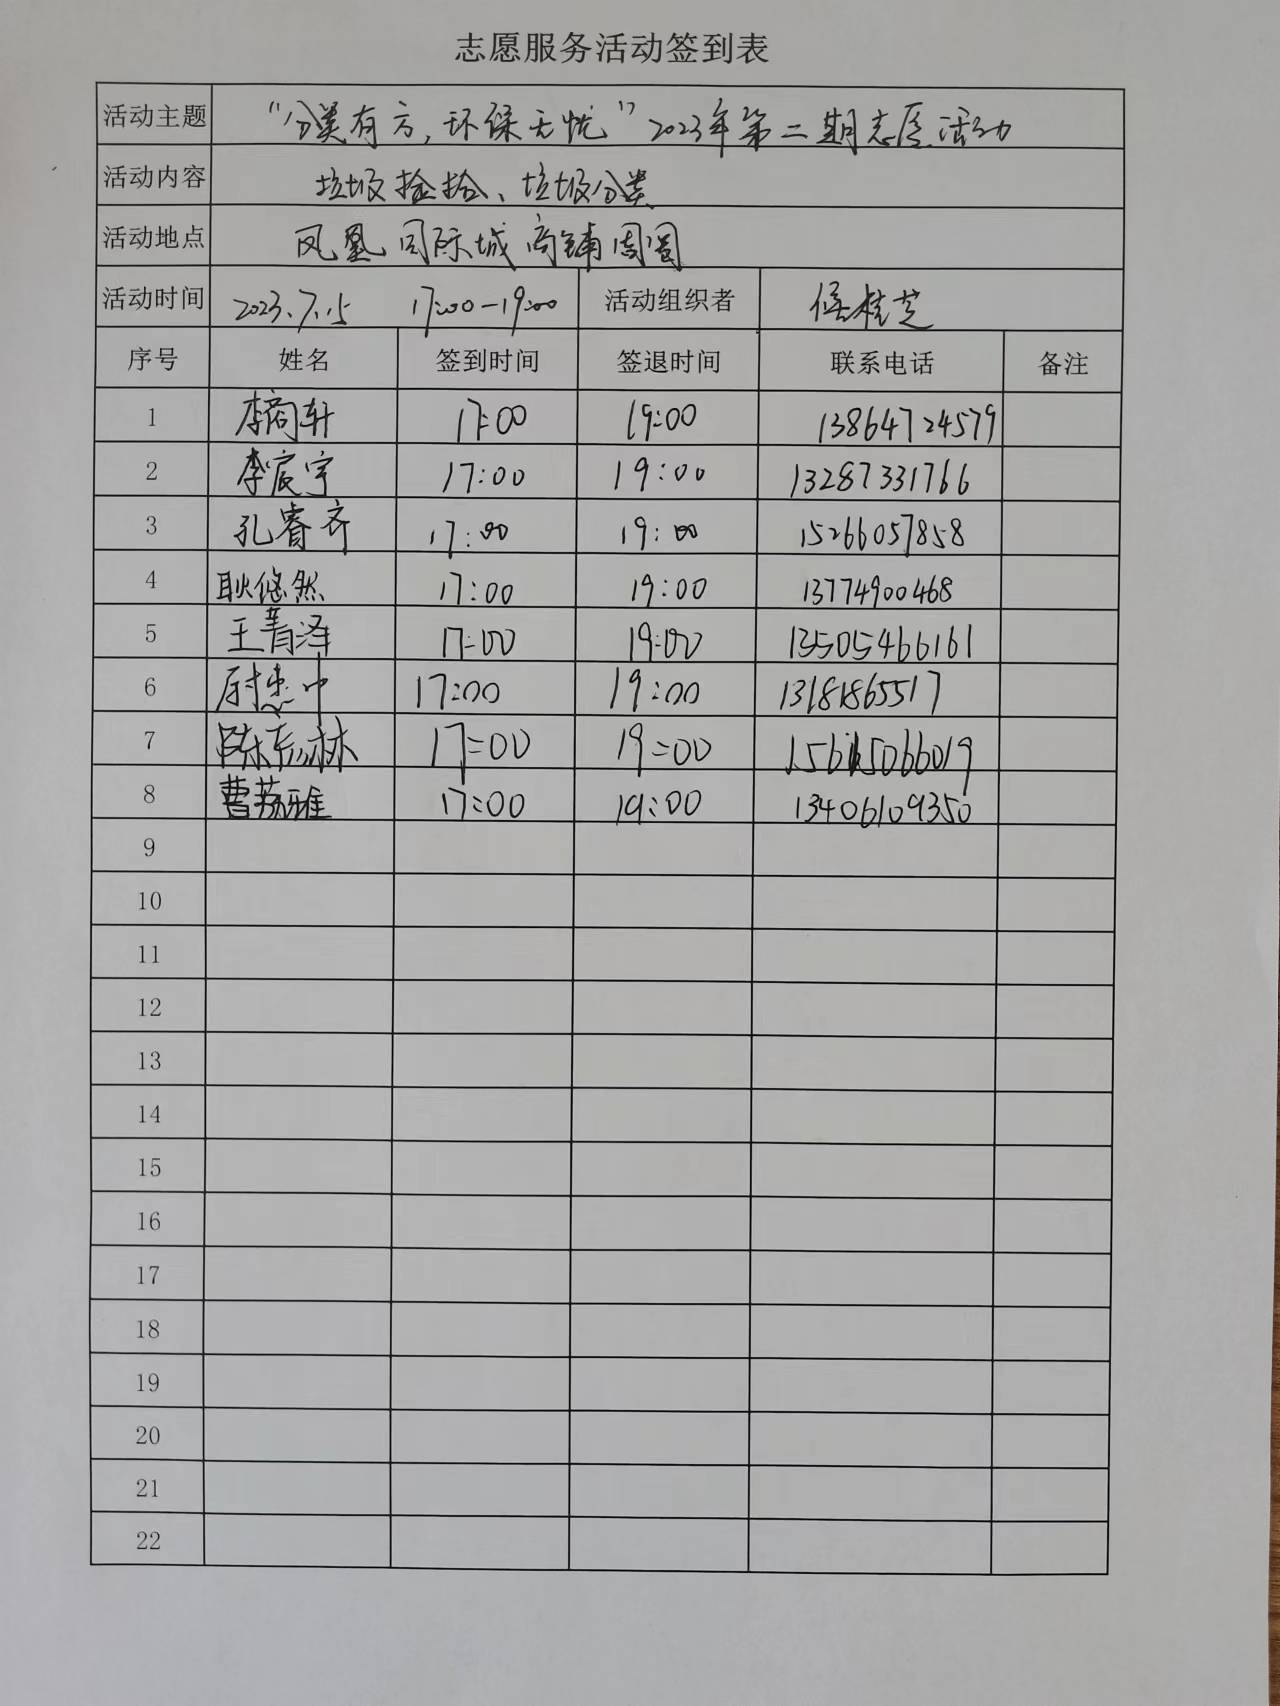 志愿服务活动签到表
活动主题 “分类有方,环保无忧”2023年第二期志愿活动
活动内容 垃圾捡拾、垃圾分类
活动地点 凤凰国际城商铺周围
活动时间 2023.7.15 17:00-19:00 活动组织者 侯桂芝
序号 姓名 签到时间 签退时间 联系电话 备注
1 李 轩 17:00 19:00 13864724579
2 李宸宇 17:00 19:00 13287331766
3 孔睿齐 17:00 19:00 15266057858
4 耿悠然 17:00 19:00 13774900468
5 王菁泽 17:00 19:00 13505466161
6 尉 中 17:00 19:00 13181865517
7 陈 林 17:00 19:00
8 曹荔雅 17:00 19:00 13406109350
9
10
11
12
13
14
15
16
17
18
19
20
21
22